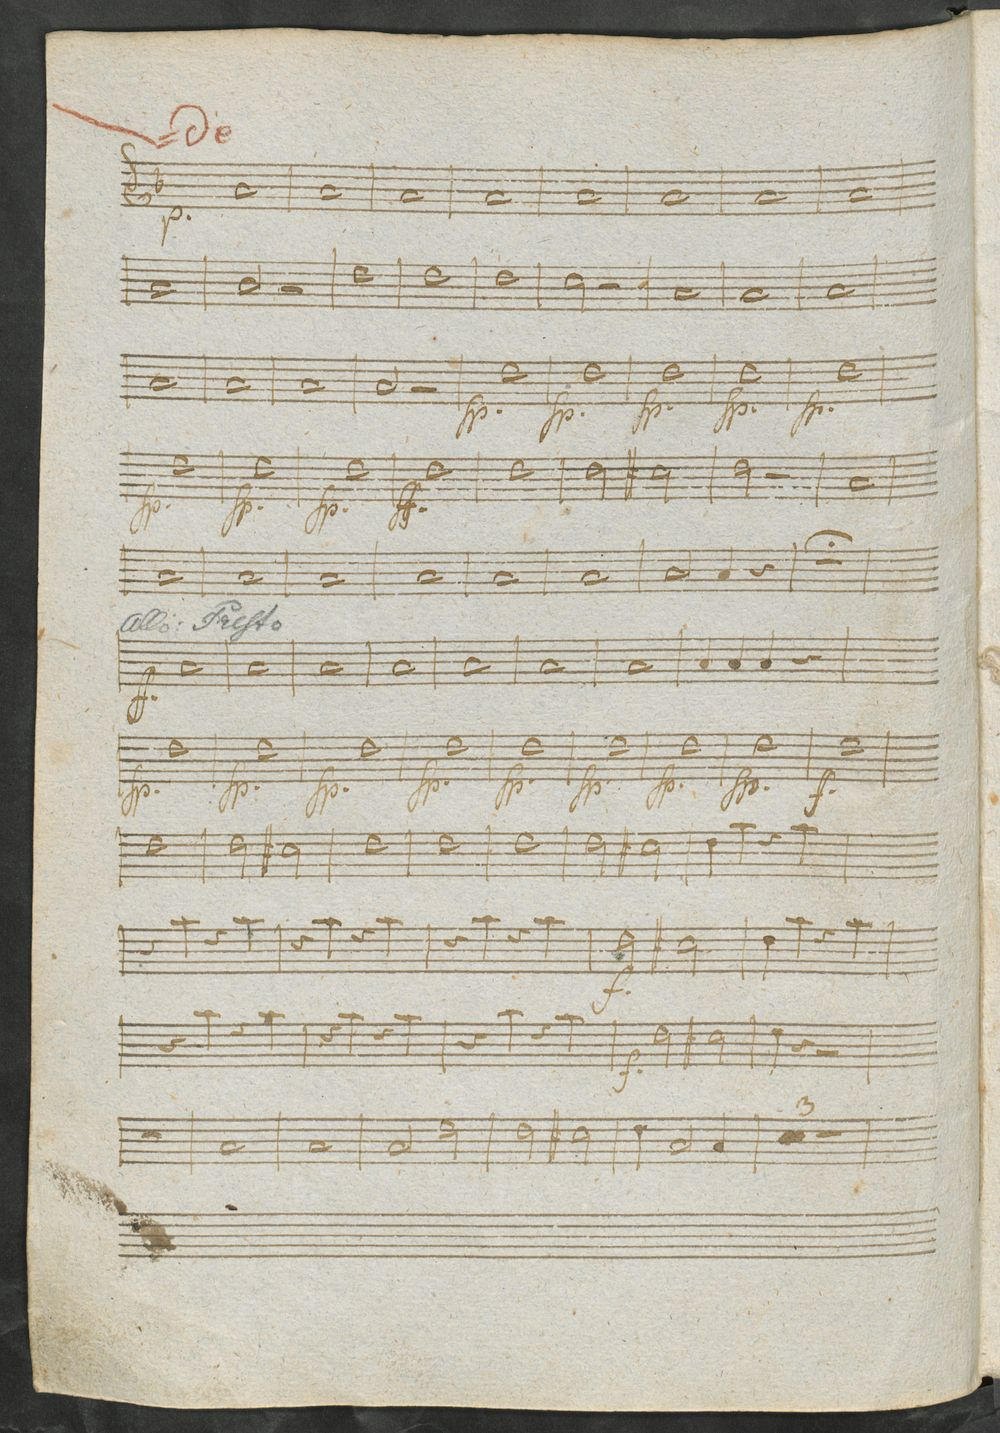 =De
p.
fp. fp. fp. fp. fp.
fp. fp. fp. ff.
Allo: Presto
f.
fp. fp. fp. fp. fp. fp. fp. fp. f.
f.
f.
3